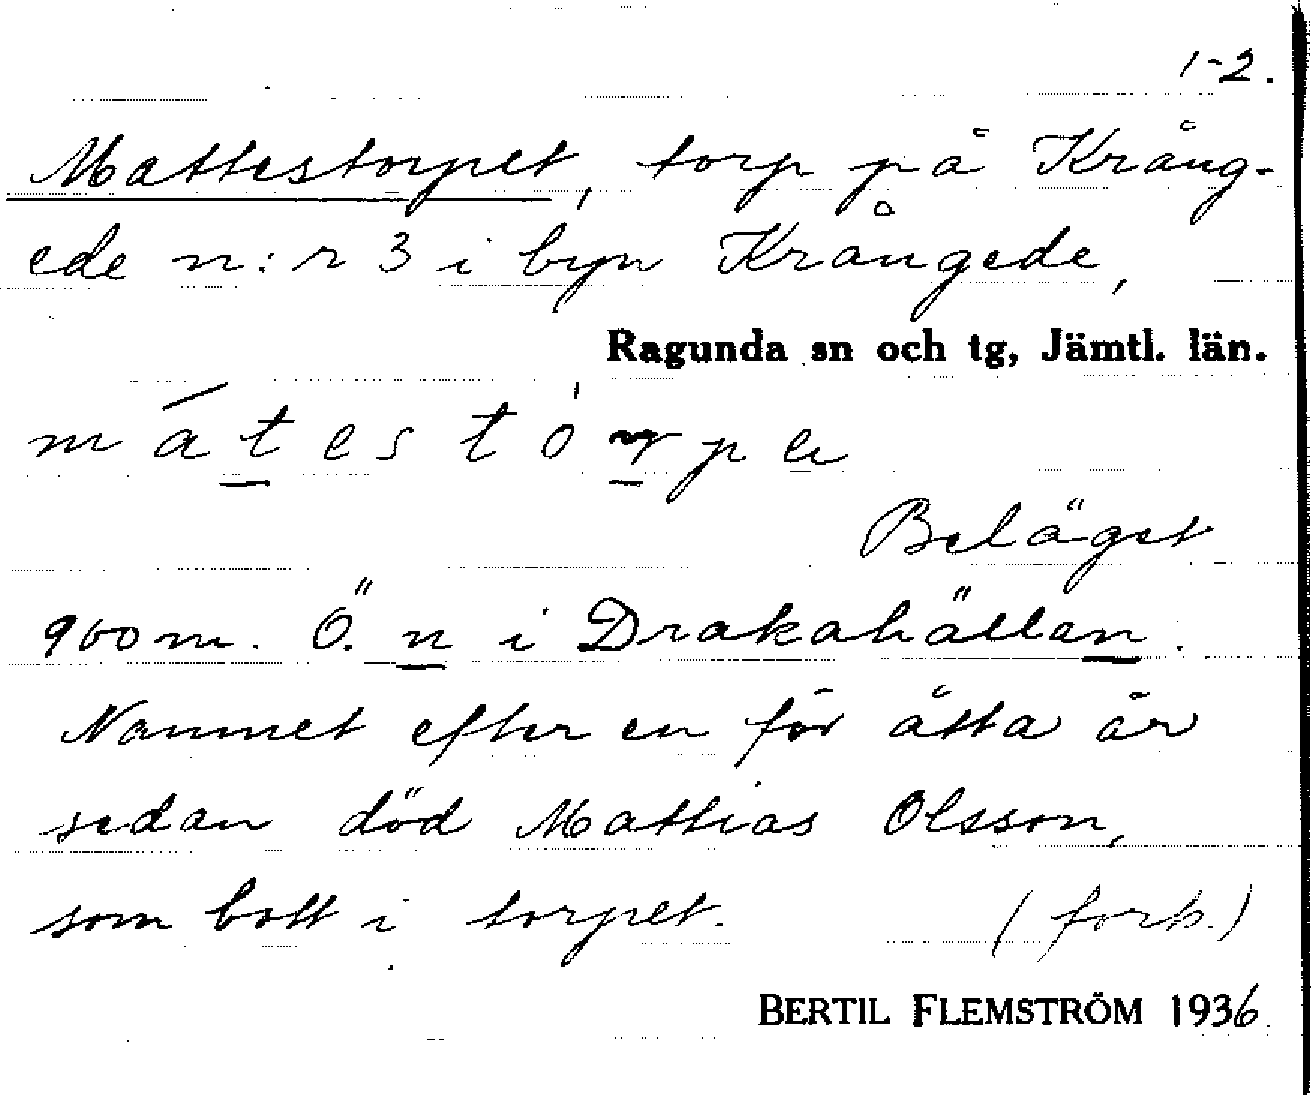 1-2.
Mattestorpet, torp på Kräng-
ede n:r 3 i byn Krångede,
Ragunda sn och tg, Jämtl. län.
mátestórpe
Beläget
900 m. Ö. n i Drakahällan.
Namnet efter en för åtta år
sedan död Mattias Olsson,
som bott i torpet. (forts.)
BERTIL FLEMSTRÖM 1936